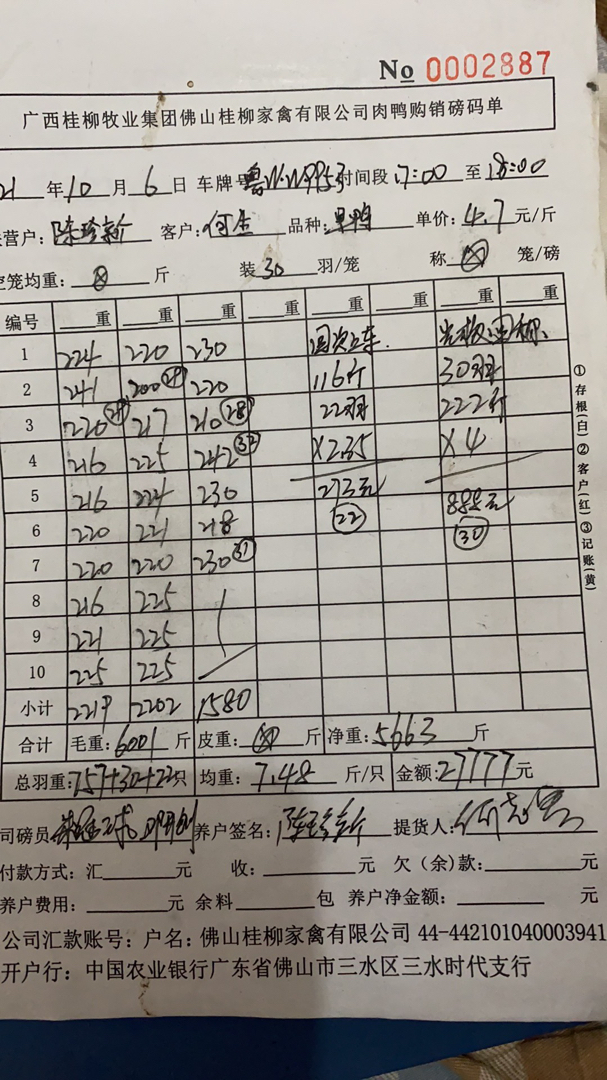 No 0002887
广西桂柳牧业集团佛山桂柳家禽有限公司肉鸭购销磅码单
21 年 10 月 6 日 车牌号: 时间段 17:00 至 18:00
营户: 陈珍新 客户: 何生 品种: 单价: 4.7 元/斤
空笼均重: 斤 装 30 羽/笼 称 笼/磅
编号 重 重 重 重 重 重 重 重
1 224 220 230
2 241 200 220 116斤 30羽
3 220 217 210 (28) 22羽 222斤
4 216 225 242 ×2.35 ×4
5 216 224 230 273元 888元
6 220 221 218 (22) (30)
7 220 220 230 (31)
8 216 225
9 221 225
10 225 225
小计 2219 2202 1580
合计 毛重: 6001 斤 皮重: 斤 净重: 5663 斤
总羽重: 757+30+22 只 均重: 7.48 斤/只 金额: 27777 元
司磅员 养户签名: 陈珍新 提货人:
付款方式: 汇 元 收: 元 欠(余)款: 元
养户费用: 元 余料 包 养户净金额: 元
公司汇款账号: 户名: 佛山桂柳家禽有限公司 44-442101040003941
开户行: 中国农业银行广东省佛山市三水区三水时代支行
①存根(白)②客户(红)③记账(黄)